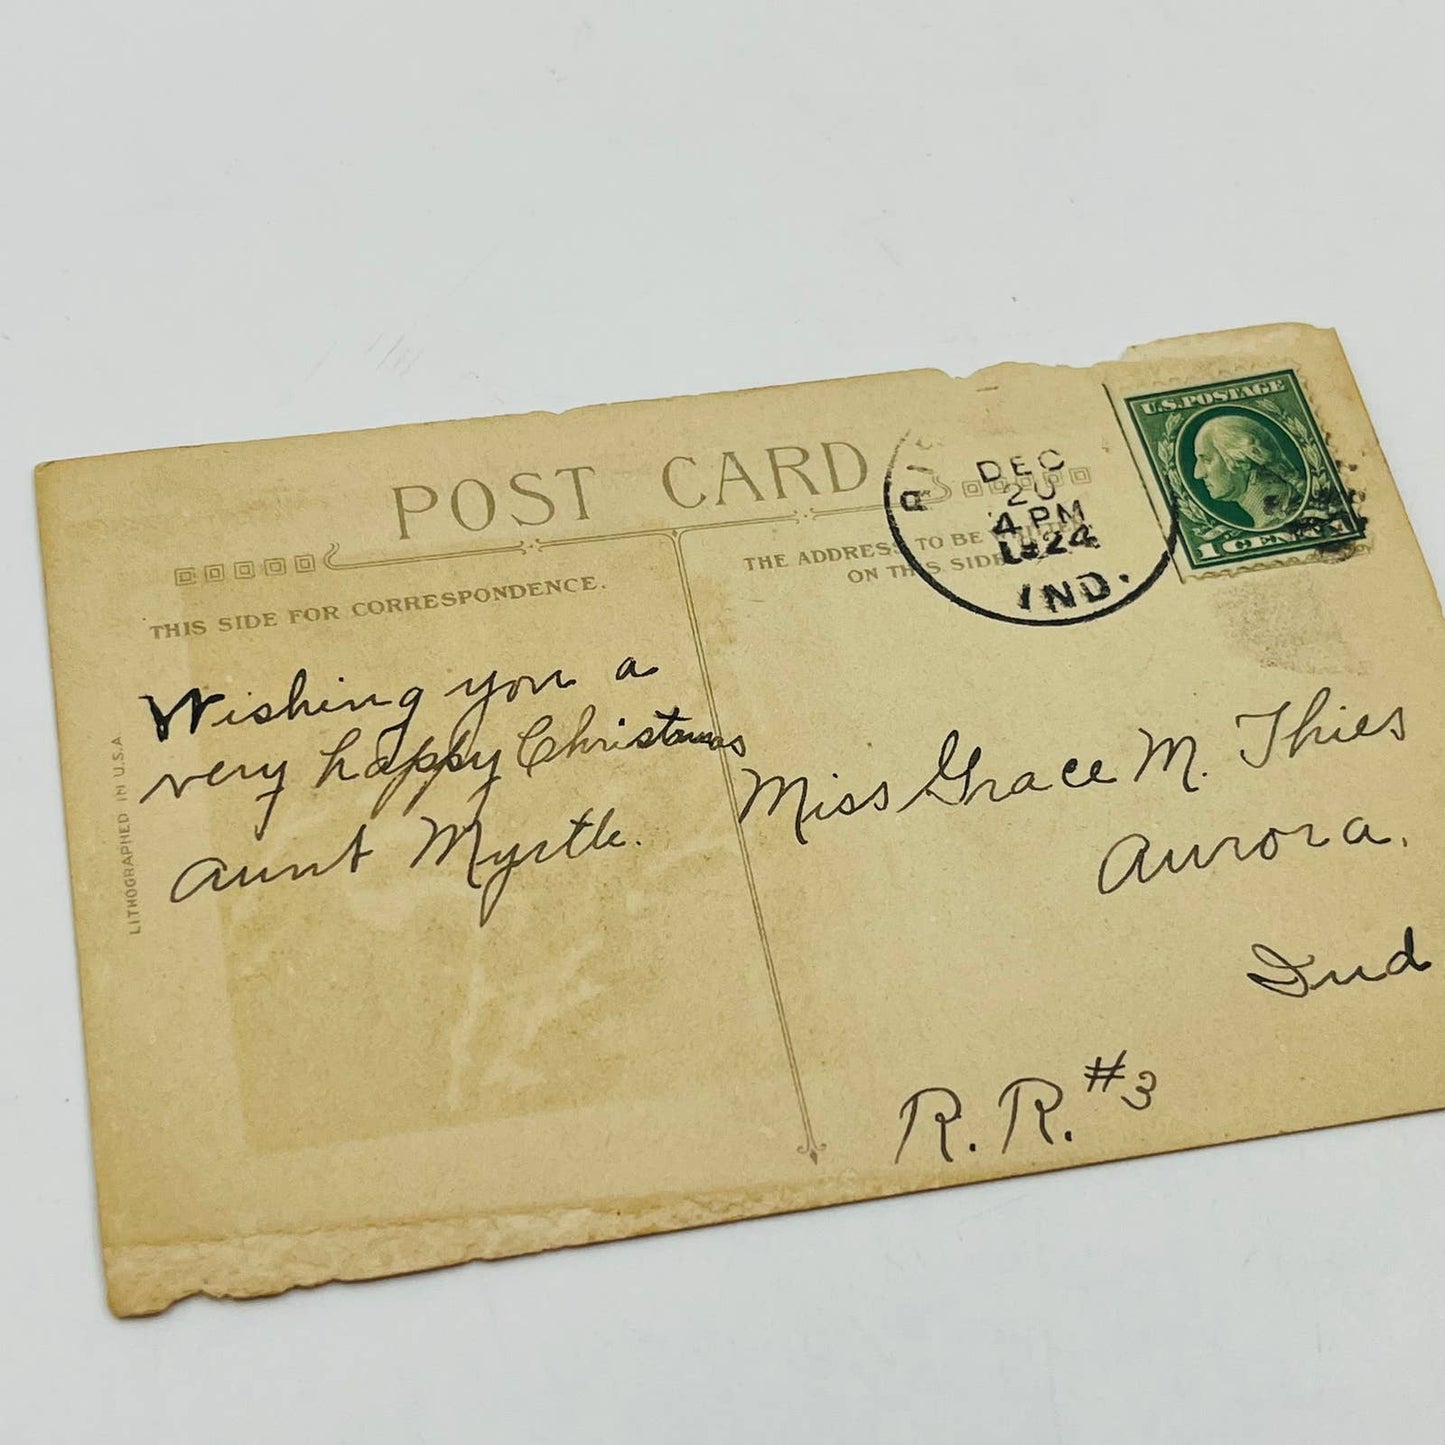 POST CARD
THIS SIDE FOR CORRESPONDENCE.
THE ADDRESS TO BE
ON THIS SIDE
DEC
20
4 PM
1924
IND.
U.S. POSTAGE
1 CENT
LITHOGRAPHED IN U.S.A
Wishing you a
very happy Christmas
Aunt Myrtle.
Miss Grace M. Thies
Aurora.
Ind
R. R. #3